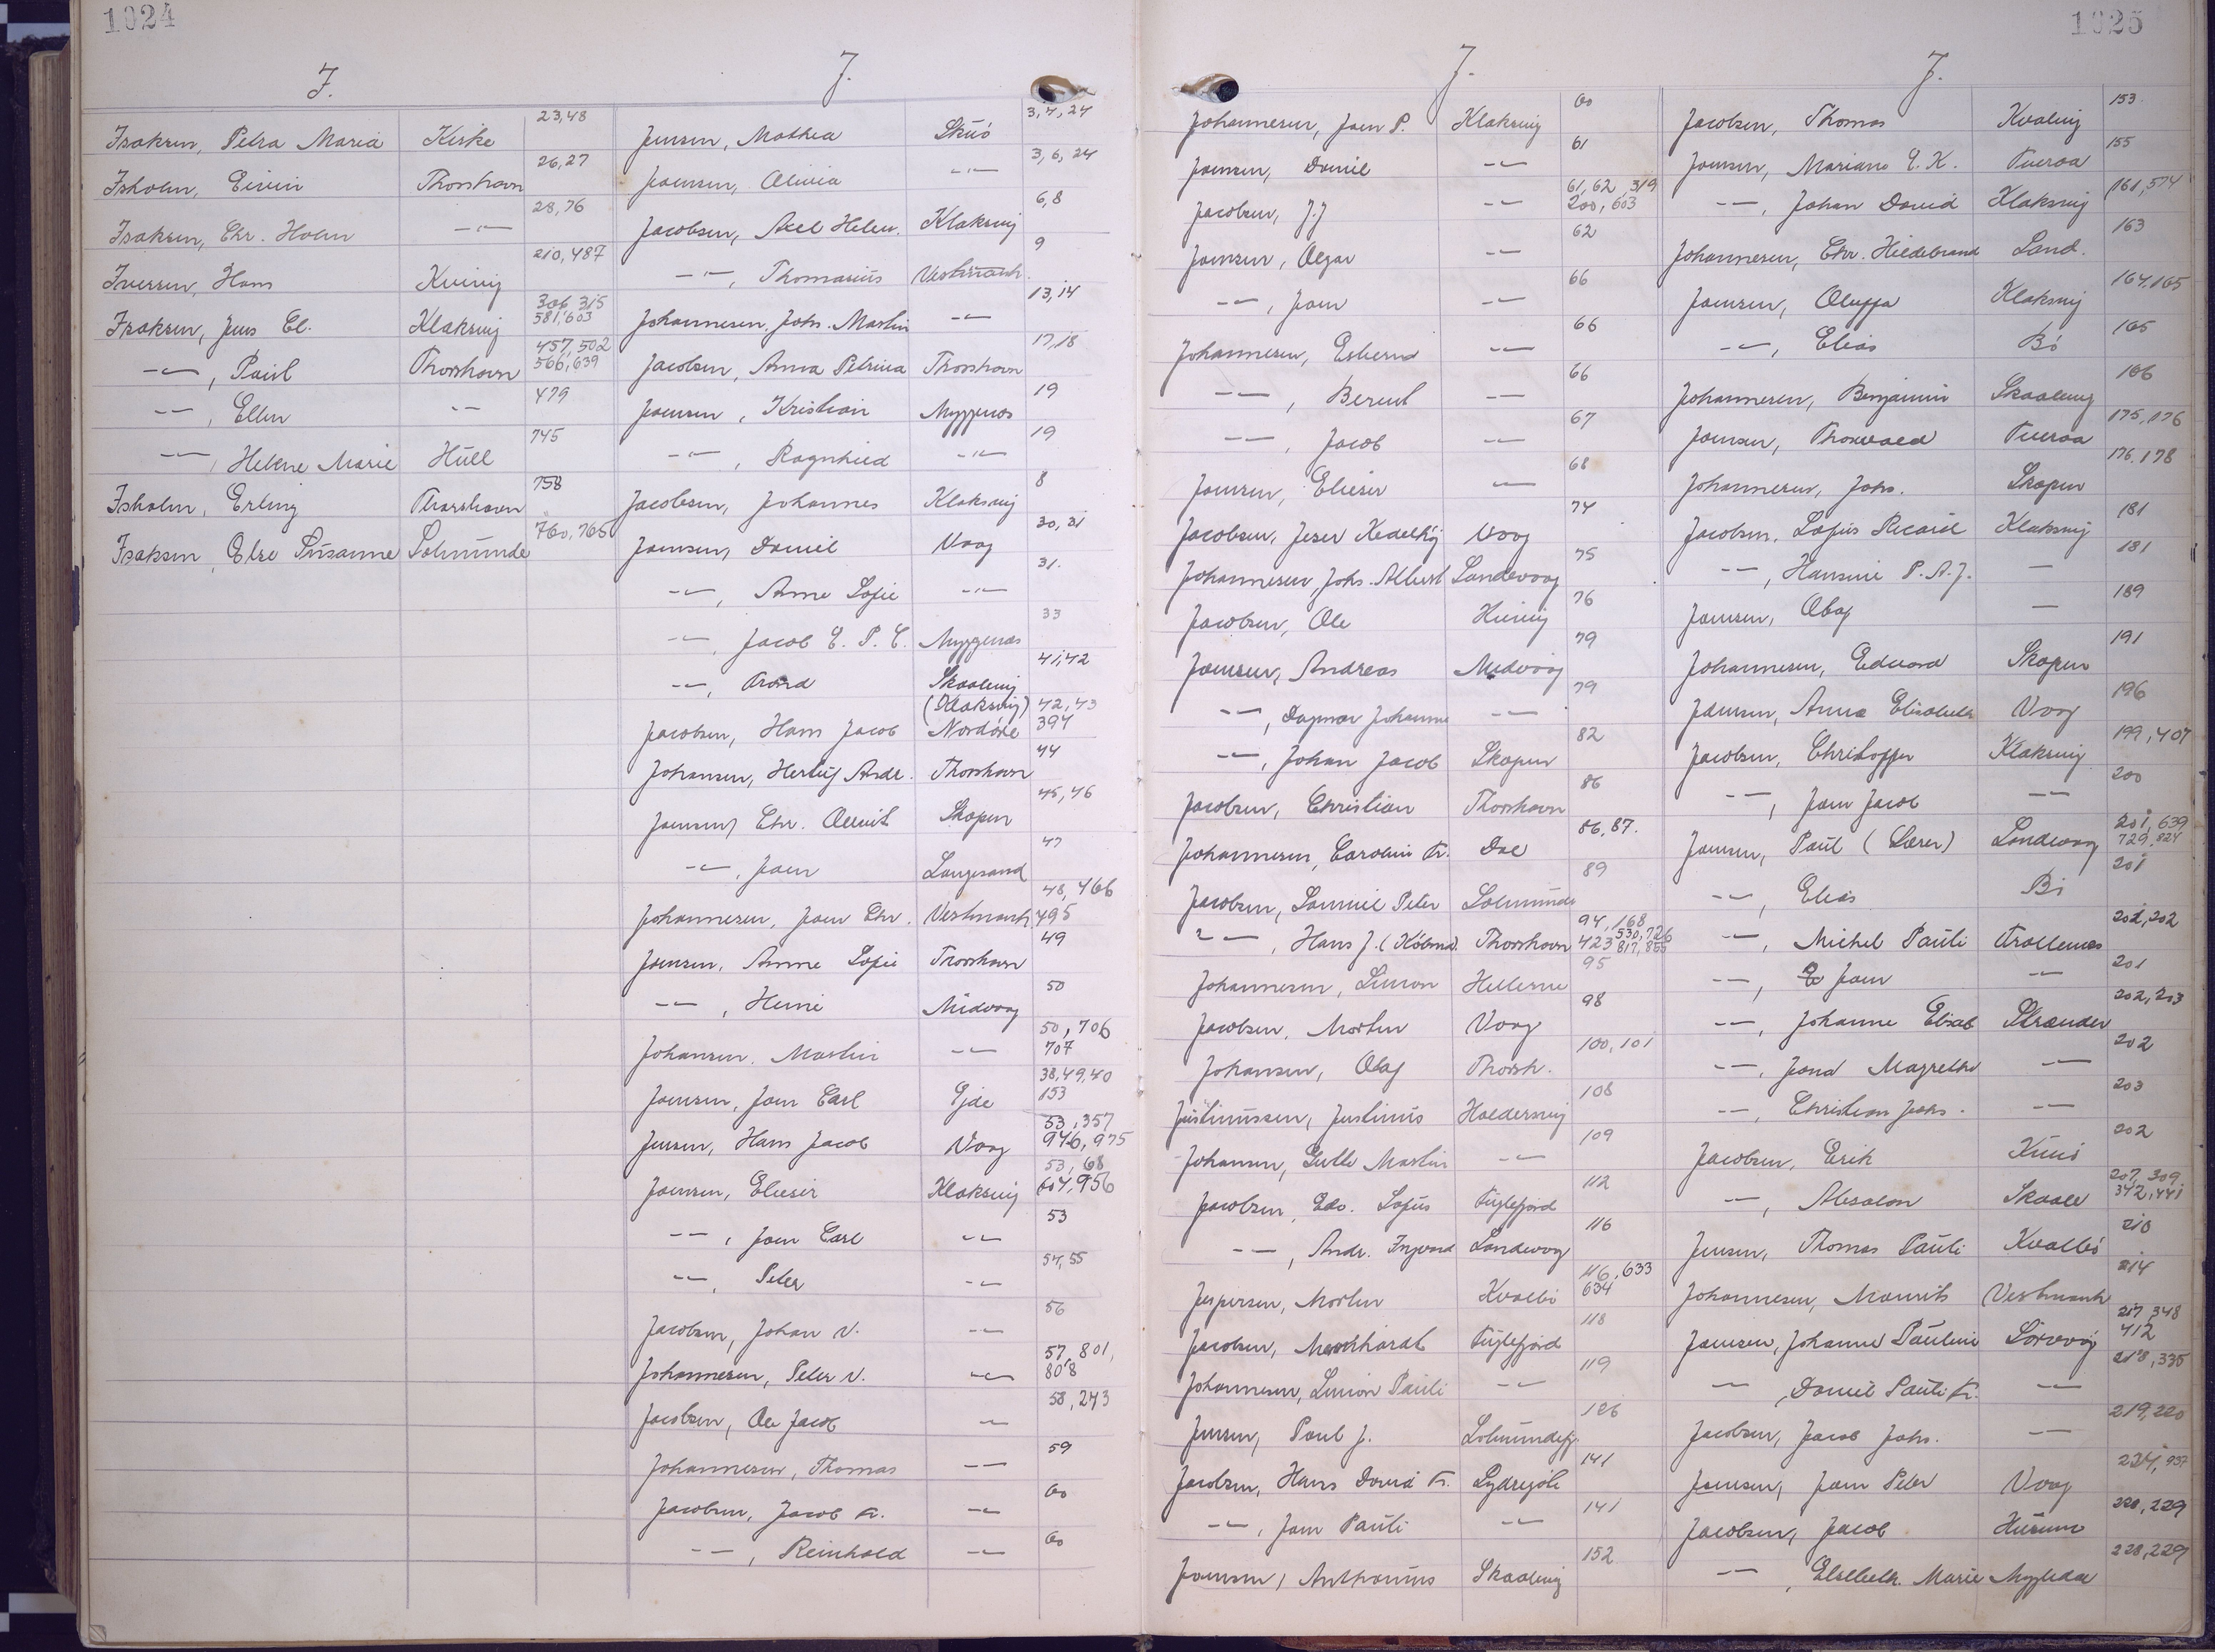 1024
I.
Isaksen, Petra Maria Kirke 23,48
Isholm, Eivin Thorshavn 26,27
Isaksen, Chr. Holm -"- 28,76
Iversen, Hans Kvivig 210,487
Isaksen, Jens Cl. Klaksvig 306, 315 581, 603
-"-, Paul Thorshavn 457, 502 566, 639
-"-, Ellen -"- 479
-"-, Helene Marie Hüll 745
Isholm, Erling Thorshavn 758
Isaksen, Else Susanne Solmunde 760, 765
J.
Jensen, Mathea Skuö 3,4,24
Joensen, Olivia -"- 3,6,24
Jacobsen, Axel Helm. Klaksvig 6,8
-"-, Thomasius Vestmanh. 9
Johannesen, Johs. Martin -"- 13,14
Jacobsen, Anna Petrina Thorshavn 17,18
Joensen, Kristian Myggenæs 19
-"-, Ragnhild -"- 19
Jacobsen, Johannes Klaksvig 8
Joensen, Daniel Vaag 30,31
-"-, Anne Sofie -"- 31.
-"-, Jacob E. P. C. Myggenæs 33
-"-, Trond Skaalevig (Klaksvig) 41,42
Jacobsen, Hans Jacob Nordöre 42,43 394
Johansen, Herluf Andr. Thorshavn 44
Joensen, Chr. Skopen 45,46
-"-, Joen Langesand 47
Johannesen, Joen Chr. Vestmanh. 48, 466 495
Joensen, Anne Sofie Thorshavn 49
-"-, Heine Midvaag 50
Johansen, Martin -"- 50, 706 707
Joensen, Joen Carl Gjde 38,49,40 153
Jensen, Hans Jacob Vaag 53, 357 946, 975
Joensen, Elieser Klaksvig 53, 68 604, 956
-"-, Joen Carl -"- 53
-"-, Peter -"- 54,55
Jacobsen, Johan V. -"- 56
Johannesen, Peter V. -"- 57, 801, 808
Jacobsen, Ole Jacob -"- 58, 243
Johannesen, Thomas -"- 59
Jacobsen, Jacob Fr. -"- 60
-"-, Reinhold -"- 60
1025
J.
Johannesen, Joen P. Klaksvig 60
Joensen, Daniel -"- 61
Jacobsen, J.J -"- 61,62,319 200, 603
Joensen, Olgar -"- 62
-"-, Joen -"- 66
Johannesen, Esbernd -"- 66
-"-, Berent -"- 66
-"-, Jacob -"- 67
Joensen, Elieser -"- 68
Jacobsen, Jeser Kedelhöj Vaag 74
Johannesen, Johs. Albert Sandevaag 75
Jacobsen, Ole 76
Joensen, Andreas Midvaag 79
-"-, Dagmar Johanne -"- 79
-"-, Johan Jacob Skopun 82
Jacobsen, Christian Thorshavn 86
Johannesen, Caroline Fr. Dal 86,87.
Jacobsen, Samuel Peter Solmunde 89
-"-, Hans J. (Købmd.) Thorshavn 94, 168 423 530, 726 817, 855
Johannesen, Simon Hellerne 95
Jacobsen, Morten Vaag 98
Johansen, Olaf Thorsh. 100, 101
Justinussen, Justinus Haldersvig 108
Johansen, Gutte Martin -"- 109
Jacobsen, Edv. Sofus Fuglefjord 112
-"-, Andr. Ingvard Sandevaag 116
Jespersen, Morten Kvalbö 116, 633 634
Jacobsen, Markhardt Fuglefjord 118
Johannesen, Simon Pauli -"- 119
Jensen, Poul J. Solmundefj. 126
Jacobsen, Hans David Fr. Lydersjöli 141
-"-, Joen Pauli -"- 141
Joensen, Anthonius Skaalevig 152
J.
Jacobsen, Thomas Kvalvig 153.
Joensen, Mariane E. K. Tveraa 155
-"-, Johan David Klaksvig 161,574
Johannesen, Chr. Hildebrand Sand. 163
Joensen, Oluffa Klaksvig 164,165
-"-, Elias Bö 165
Johannesen, Benjamin Skaalevig 166
Joensen, Thorvald Tveraa 175,176
Johannesen, Johs. Skopun 176,178
Jacobsen, Sofus Ricard Klaksvig 181
-"-, Hansine P. A. J. -"- 181
Joensen, Olaf -"- 189
Johannesen, Edvard Skopun 191
Joensen, Anna Elisabeth Vaag 196
Jacobsen, Christoffer Klaksvig 199, 407
-"-, Joen Jacob -"- 200
Joensen, Paul (Lærer) Sandevaag 201, 639 729, 824
-"-, Elias Bö 201
-"-, Michel Pauli Trollenæs 201,202
-"-, Joen -"- 201
-"-, Johanne Elisab Strænder 202,203
-"-, Jona Magrethe -"- 202
-"-, Christian Johs. -"- 203
Jacobsen, Erik Kunö 202
-"-, Absalon Skaale 207, 309, 342, 441
Jensen, Thomas Pauli Kvalbö 210
Johannesen, Mourits Vestmanh 214
Joensen, Johanne Pauline Sørvaag 217, 348 412
-"-, Daniel Pauli Fr. -"- 218, 335
Jacobsen, Jacob Johs. -"- 219,220
Joensen, Joen Peter Vaag 224, 937
Jacobsen, Jacob Husum 228, 229
-"-, Elsebeth. Marie Mygledal 228,229